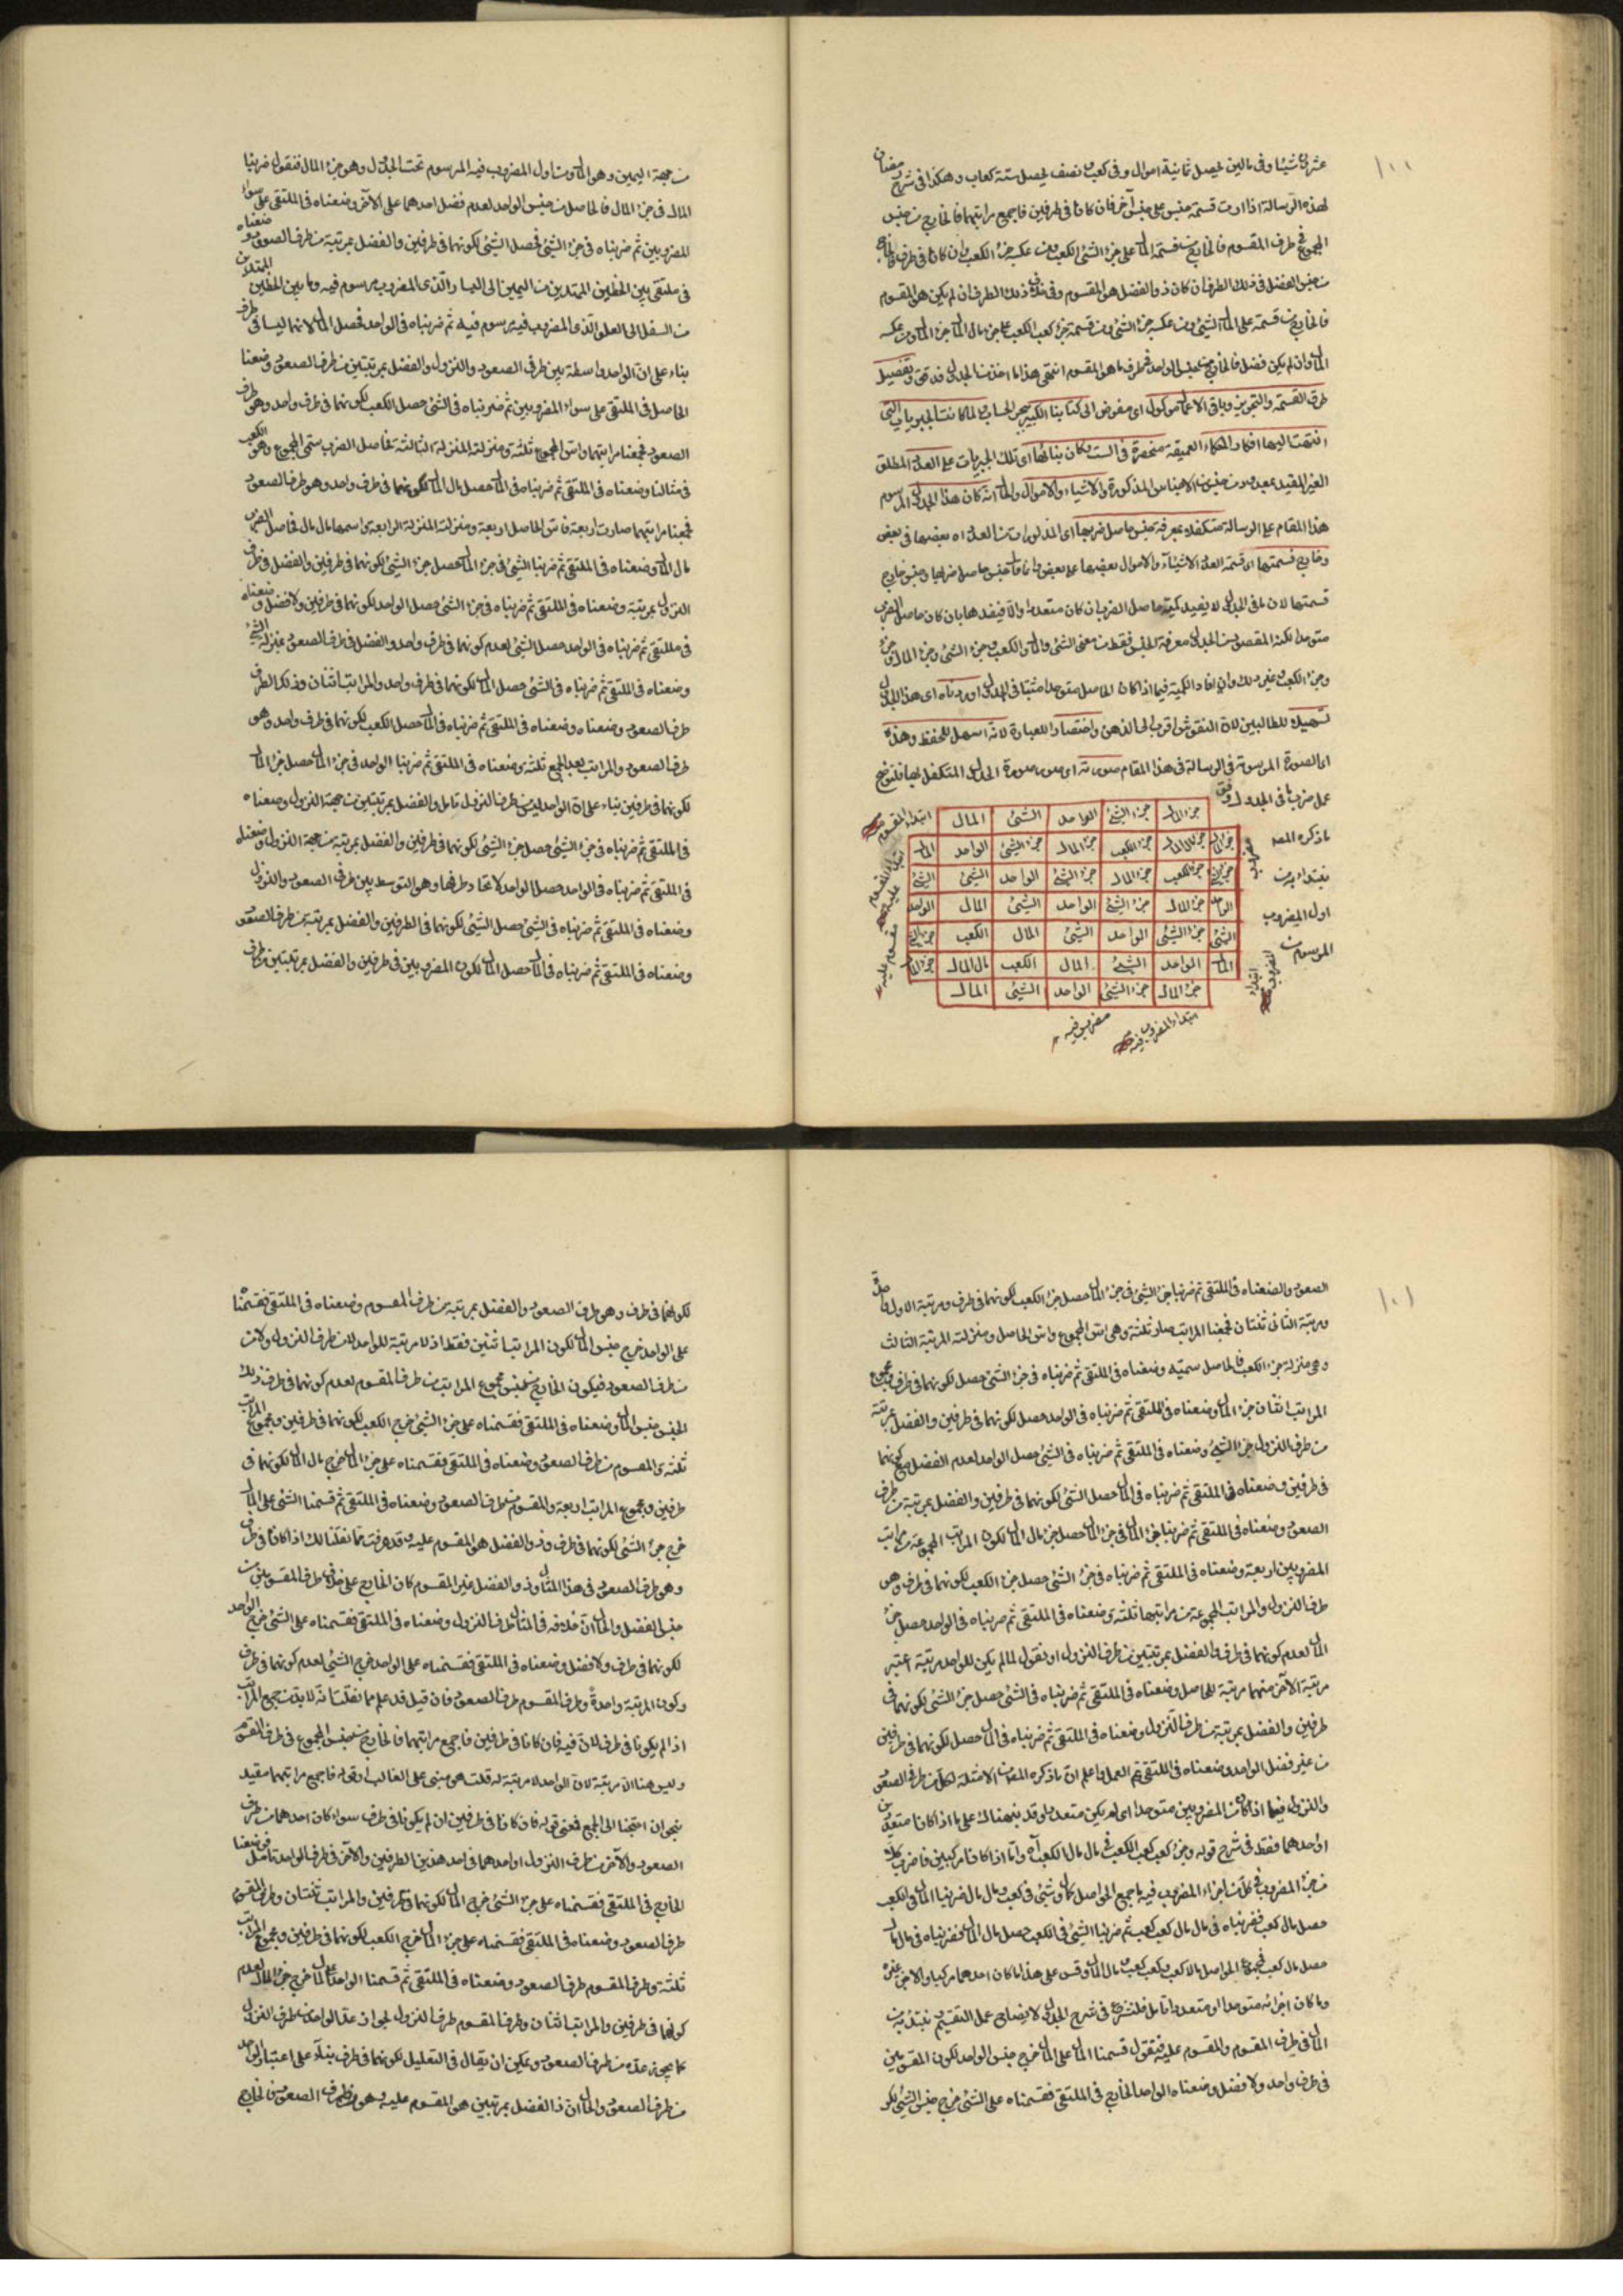 ١٠٠
عشرين شيئا وفى مالين يحصل ثمانية اموال وفى كعب نصف يحصل ستة كعاب وهكذا فى شرح
لهذه الرسالة اذا اردت قسمة جنس على جنس آخر فان كانا فى طرفين فاجمع مراتبهما فالخارج من جنس
المجموع فى طرف المقسوم فالخارج من قسمة المال على جزء الشئ الكعب ومن عكسه جزء الكعب وان كانا فى طرف فالخارج
من جنس الفضل فى ذلك الطرف ان كان ذو الفضل هو المقسوم وفى خلاف ذلك الطرف ان لم يكن هو المقسوم
فالخارج من قسمة على المال الشئ ومن عكسه جزء الشئ ومن قسمة جزء كعب الكعب على جزء مال المال جزء المال ومن عكسه
المال وان لم يكن فضل فالخارج من جنس الواحد فى طرف ما هو المقسوم انتهى هذا ما اخذنا الجدول وتفصيل
طرق القسمة والتجذير وباقى الاعمال موكول اى مفوض الى كتابنا الكبير بحر الحساب لما كانت الجبريات التى
انتهت اليها افكار الحكماء العميقة منحصرة فى الست وكان بنائها اى تلك الجبريات على العدد المطلق
الغير المقيد بمعدود من الاجناس المذكورة والاشياء والاموال والحال انه كان هذا الجدول المرسوم
هذا المقام على الرسالة متكفلا بمعرفة جنس حاصل ضربها اى المذكورات من العدد اه بعضها فى بعض
وخارج قسمتها اى قسمة العدد والاشياء والاموال بعضها على بعض وانما قال جنس حاصل ضربها وجنس خارج
قسمتها لان ما فى الجدول لا يفيد كمية حاصل الضرب ان كان متعددا والا فيفيدها بان كان حاصل الضرب
متوحدا لكن المقصود من الجدول معرفة الجنس فقط من معنى الشئ والمال والكعب وجزء الشئ وجزء المال
وجزء الكعب وغير ذلك وان افاد الكمية فيما اذا كان الحاصل متوحدا مثبتا فى الجدول اوردناه اى هذا الجدول
تسهيلا للطالبين لان النقوش اقرب الى الذهن واختصارا للعبارة لانه اسهل للحفظ وهذه
اى الصورة المرسومة فى الرسالة فى هذا المقام صورته اى صورة الجدول المتكفل بها فلنوضح
عمل ضربنا فى الجدول وفق
ما ذكره المصنف
نبتداء من
اول المضروب
المرسوم
ابتداء المقسوم
جزء المال جزء الشئ الواحد الشئ المال
جزء المال جزء مال المال جزء الكعب جزء المال جزء الشئ الواحد المال
جزء الشئ جزء الكعب جزء المال جزء الشئ الواحد الشئ الشئ
الواحد جزء المال جزء الشئ الواحد الشئ المال الواحد
الشئ جزء الشئ الواحد الشئ المال الكعب جزء الشئ
المال الواحد الشئ المال الكعب مال المال جزء المال
جزء المال جزء الشئ الواحد الشئ المال
ابتداء المقسوم عليه
مقسوم عليه
ابتداء المضروب
ابتداء المضروب فيه
مضروب فيه
من جهة اليمين وهو المال ومن اول المضروب فيه المرسوم تحت الجدول وهو جزء المال فنقول ضربنا
المال فى جزء المال فالحاصل من جنس الواحد لعدم فضل احدهما على الآخر وضعناه فى الملتقى على سواء
المضروبين ثم ضربناه فى جزء الشئ فحصل الشئ لكونهما فى طرفين والفضل بمرتبة من طرف الصعود وضعناه
فى ملتقى بين الخطين الممتدين من اليمين الى اليسار الذى المضروب مرسوم فيه وما بين الخطين الممتدين
من السفل الى العلو الذى المضروب فيه مرسوم فيه ثم ضربناه فى الواحد فحصل المال لانهما ليسا فى طرف
بناء على ان الواحد واسطة بين طرفى الصعود والنزول والفضل بمرتبتين من طرف الصعود وضعنا
الحاصل فى الملتقى على سواء المضروبين ثم ضربناه فى الشئ حصل الكعب لكونهما فى طرف واحد وهو طرف
الصعود فجمعنا مراتبهما واس المجموع ثلثة ومنزلته المنزلة الثالثة فحاصل الضرب سمى المجموع وهو الكعب
فى مثالنا وضعناه فى الملتقى ثم ضربناه فى المال حصل مال المال لكونهما فى طرف واحد وهو طرف الصعود
فجمعنا مراتبهما صارت اربعة فاس الحاصل اربعة ومنزلته المنزلة الرابعة واسمها مال مال فحاصل الضرب
مال المال وضعناه فى الملتقى ثم ضربنا الشئ فى جزء المال حصل جزء الشئ لكونهما فى طرفين والفضل فى طرف
النزول بمرتبة وضعناه فى الملتقى ثم ضربناه فى جزء الشئ حصل الواحد لكونهما فى طرفين ولا فضل وضعناه
فى ملتقى ثم ضربناه فى الواحد حصل الشئ لعدم كونهما فى طرف واحد والفضل فى طرف الصعود بمنزلة الشئ
وضعناه فى الملتقى ثم ضربناه فى الشئ حصل المال لكونهما فى طرف واحد والمراتب اثنان وذلك الطرف
طرف الصعود وضعناه وضعناه فى الملتقى ثم ضربناه فى المال حصل الكعب لكونهما فى طرف واحد وهو
طرف الصعود والمراتب بعد الجمع ثلثة وضعناه فى الملتقى ثم ضربنا الواحد فى جزء المال حصل جزء المال
لكونهما فى طرفين بناء على ان الواحد ليس من طرف النزول تامل والفضل بمرتبتين من جهة النزول وضعناه
فى الملتقى ثم ضربناه فى جزء الشئ حصل جزء الشئ لكونهما فى طرفين والفضل بمرتبة من جهة النزول وضعناه
فى الملتقى ثم ضربناه فى الواحد حصل الواحد لاتحاد طرفها وهو التوسط بين طرفى الصعود والنزول
وضعناه فى الملتقى ثم ضربناه فى الشئ حصل الشئ لكونهما فى الطرفين والفضل بمرتبة من طرف الصعود
وضعناه فى الملتقى ثم ضربناه فى المال حصل المال لكون المضروبين فى طرفين والفضل بمرتبتين من طرف
١٠١
الصعود والضعناه فى الملتقى ثم ضربنا جزء الشئ فى جزء المال حصل جزء الكعب لكونهما فى طرف ومرتبة الاول واحدة
ومرتبة الثانى ثنتان فجمعنا المراتب صار ثلثة وهى اس المجموع واس الحاصل ومنزلته المرتبة الثالث
وهى منزلة جزء الكعب فالحاصل سميه وضعناه فى الملتقى ثم ضربناه فى جزء الشئ حصل لكونهما فى طرف ومجموع
المراتب اثنان جزء المال وضعناه فى الملتقى ثم ضربناه فى الواحد حصل لكونهما فى طرفين والفضل بمرتبة
من طرف النزول جزء الشئ وضعناه فى الملتقى ثم ضربناه فى الشئ حصل الواحد لعدم الفضل مع كونهما
فى طرفين وضعناه فى الملتقى ثم ضربناه فى المال حصل الشئ لكونهما فى طرفين والفضل بمرتبة من طرف
الصعود وضعناه فى الملتقى ثم ضربنا جزء المال فى جزء المال حصل جزء مال المال لكون المراتب المجموعة من مراتب
المضروبين اربعة وضعناه فى الملتقى ثم ضربناه فى جزء الشئ حصل جزء الكعب لكونهما فى طرف وهو
طرف النزول والمراتب المجموعة من مراتبها ثلثة وضعناه فى الملتقى ثم ضربناه فى الواحد حصل جزء
المال لعدم كونهما فى طرف والفضل بمرتبتين من طرف النزول او نقول لما لم يكن للواحد مرتبة اعتبر
مرتبة الآخر منهما مرتبة للحاصل وضعناه فى الملتقى ثم ضربناه فى الشئ حصل جزء الشئ لكونهما فى
طرفين والفضل بمرتبة من طرف النزول وضعناه فى الملتقى ثم ضربناه فى المال حصل لكونهما فى طرفين
من غير فضل الواحد وضعناه فى الملتقى تم العمل واعلم ان ما ذكره المصنف من الامثلة لكل من طرفى الصعود
والنزول فيما اذا كان المضروبين متوحدا اى لم يكن متعددا وقد نبهناك على ما اذا كانا متعددين
او احدهما فقط فى شرح قوله وجزء كعب كعب الكعب فى مال مال الكعب اه واما اذا كانا مركبين فاضرب كلا
من جزء المضروب فى كل من اجزاء المضروب فيه واجمع الحواصل كمال وشئ فى كعب ومال مال ضربنا المال فى الكعب
حصل مال كعب فضربناه فى مال مال كعب كعب ثم ضربنا الشئ فى الكعب حصل مال المال فضربناه فى مال مال
حصل مال كعب فمجموع الحواصل مالا كعب وكعب كعب ومال المال وقس على هذا ما كان احدهما مركبا والآخر غيره
وما كان اجزائه متوحدا او متعددا تامل فلنشرع فى شرح الجدول لايضاح عمل التقسيم نبتدئ من
المال فى طرف المقسوم والمقسوم عليه فنقول قسمنا المال على المال خرج جنس الواحد لكون المقسومين
فى طرف واحد ولا فضل وضعناه الواحد الخارج فى الملتقى فقسمناه على الشئ خرج جنس الشئ لكو
لكونهما فى طرف وهو طرف الصعود والفضل بمرتبة من طرف المقسوم وضعناه فى الملتقى فقسمنا
على الواحد خرج جنس المال لكون المراتب اثنين فقط اذ لا مرتبة للواحد لا من طرف النزول ولا من
من طرف الصعود فيكون الخارج من جنس مجموع المراتب من طرف المقسوم لعدم كونهما فى طرف وذلك
الجنس جنس المال وضعناه فى الملتقى فقسمناه على جزء الشئ خرج الكعب لكونهما فى طرفين ومجموع المراتب
ثلثة والمقسوم من طرف الصعود وضعناه فى الملتقى فقسمناه على جزء المال خرج مال المال لكونهما فى
طرفين ومجموع المراتب اربعة والمقسوم من طرف الصعود وضعناه فى الملتقى ثم قسمنا الشئ على المال
خرج جزء الشئ لكونهما فى طرف وذو الفضل هو المقسوم عليه وقد عرفت مما نقلنا لك اذا كانا فى طرف
وهو طرف الصعود فى هذا المثال وذو الفضل غير المقسوم كان الخارج على خلاف طرف المقسومين من
جنس الفضل والحال ان خلافه فى المثال طرف النزول وضعناه فى الملتقى فقسمناه على الشئ خرج الواحد
لكونهما فى طرف ولا فضل وضعناه فى الملتقى فقسمناه على الواحد خرج الشئ لعدم كونهما فى طرف
وكون المرتبة واحدة وطرف المقسوم طرف الصعود فان قيل قد علم مما نقلت انه لابد من جمع المراتب
اذا لم يكونا فى طرف لان فيه فان كانا فى طرفين فاجمع مراتبهما فالخارج من جنس المجموع فى طرف المقسوم
وليس هنا الا مرتبة لان الواحد لا مرتبة له قلت هو مبنى على الغالب او قوله فاجمع مراتبهما مقيد
بنحو ان احتجنا الى الجمع فمعنى قوله فان كانا فى طرفين ان لم يكونا فى طرف سواء كان احدهما من طرف
الصعود والآخر من طرف النزول او احدهما فى احد هذين الطرفين والآخر فى طرف الواحد تامل فوضعنا
الخارج فى الملتقى فقسمناه على جزء الشئ خرج المال لكونهما فى طرفين والمراتب ثنتان وطرف المقسوم
طرف الصعود وضعناه فى الملتقى فقسمناه على جزء المال خرج الكعب لكونهما فى طرفين ومجموع المراتب
ثلثة وطرف المقسوم طرف الصعود وضعناه فى الملتقى ثم قسمنا الواحد على المال خرج جزء المال لعدم
كونهما فى طرفين والمراتب اثنان وطرف المقسوم طرف النزول لجواز عد الواحد من طرف النزول
كما يجوز عده من طرف الصعود ويمكن ان يقال فى التعليل لكونهما فى طرف بناء على اعتبار الواحد
من طرف الصعود والحال ان ذا الفضل بمرتبتين هو المقسوم عليه وهو فى طرف الصعود فالخارج